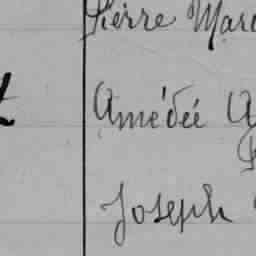 Pierre Mar
Amédée A
Joseph